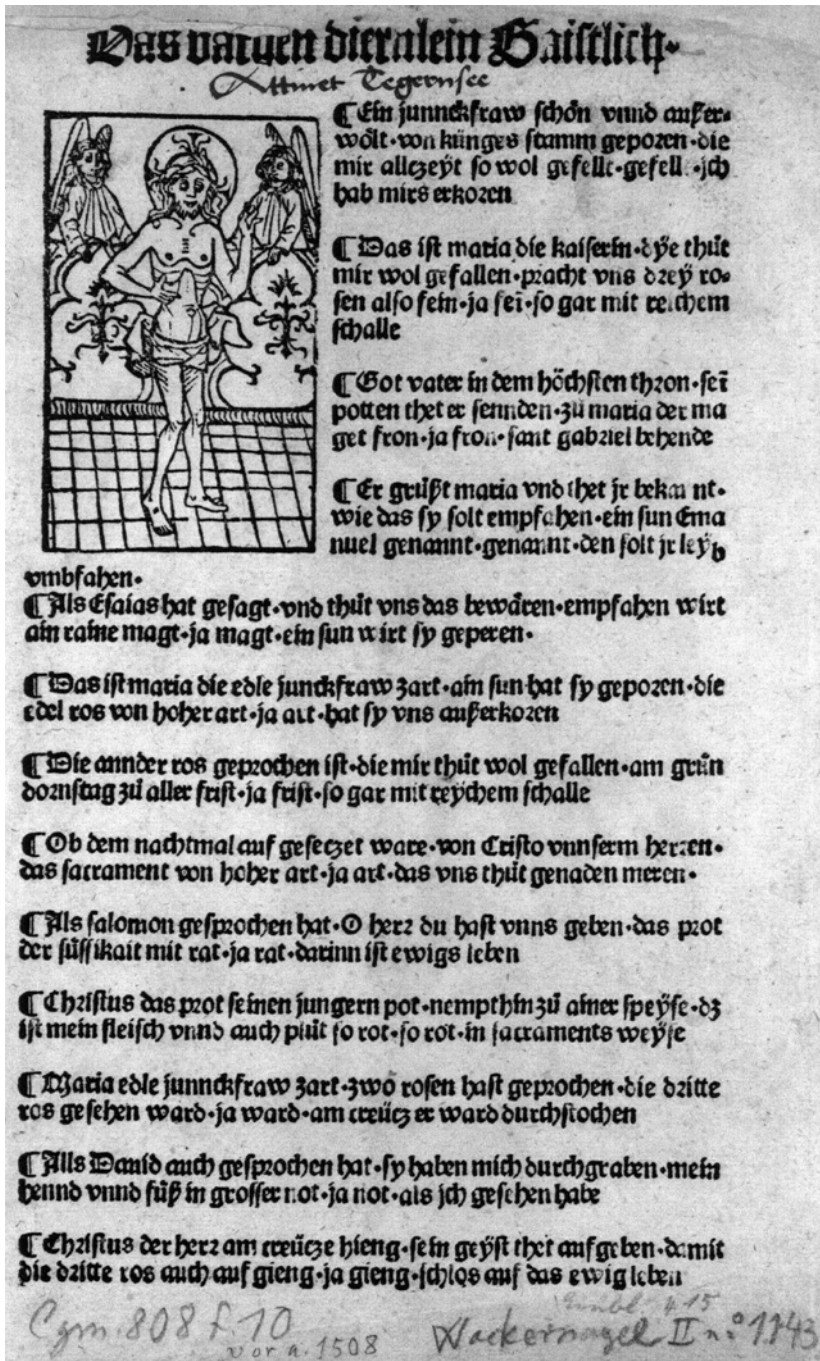 Das vatuen diernlein Gaistlich·
Attinet Tegernsee
¶Ein junnckfraw schön vnnd außer⸗
wölt·von künges stamm geporen·die
mir allczeyt so wol gefellt·gefell·jch
hab mirs erkoren
¶Das ist maria die kaiserin·dÿe thůt
mir wol gefallen·pracht vns drey ro⸗
sen also fein·ja fei̅·so gar mit reichem
schalle
¶Got vater in dem höchsten thron·sei̅
potten thet er sennden·zů maria der ma
get fron·ja fron·sant gabriel behende
¶Er grůßt maria vnd thet jr bekannt·
wie das sy solt empfahen·ein sun Ema
nuel genannt·genannt·den solt jr leyb
vmbfahen·
¶Als Esaias hat gesagt·vnd thůt vns das bewären·empfahen wirt
ain raine magt·ja magt·ein sun wirt sy geperen·
¶Das ist maria die edle junckfraw zart·ain sun hat sy geporen·die
edel ros von hoher art·ja art·hat sy vns außerkoren
¶Die annder ros geprochen ist·die mir thůt wol gefallen·am grůn
dornstag zů aller frist·ja frist·so gar mit reÿchem schalle
¶Ob dem nachtmal auf gesetzet ware·von Cristo vnnserm herren·
das sacrament von hoher art·ja art·das vns thůt genaden meren·
¶Als salomon gesprochen hat·O herr du hast vnns geben·das prot
der süssikait mit rat·ja rat·darinn ist ewigs leben
¶Christus das prot seinen jungern pot·nempt hin zů ainer speÿse·dz
ist mein fleisch vnnd auch plůt so rot·so rot·in sacraments weÿse
¶Maria edle junnckfraw zart·zwo rosen hast geprochen·die dritte
ros gesehen ward·ja ward·am creücz er ward durchstochen
¶Alls Dauid auch gesprochen hat·sy haben mich durchgraben·mein
hennd vnnd füß in grosser not·ja not·als jch gesehen habe
¶Christus der herr am creücze hieng·sein geÿst thet auf geben·damit
die dritte ros auch auf gieng·ja gieng·schlos auf das ewig leben
Einbl. 4 15
Cgm. 808 f. 10
vor a. 1508
Wackernagel II n° 1143